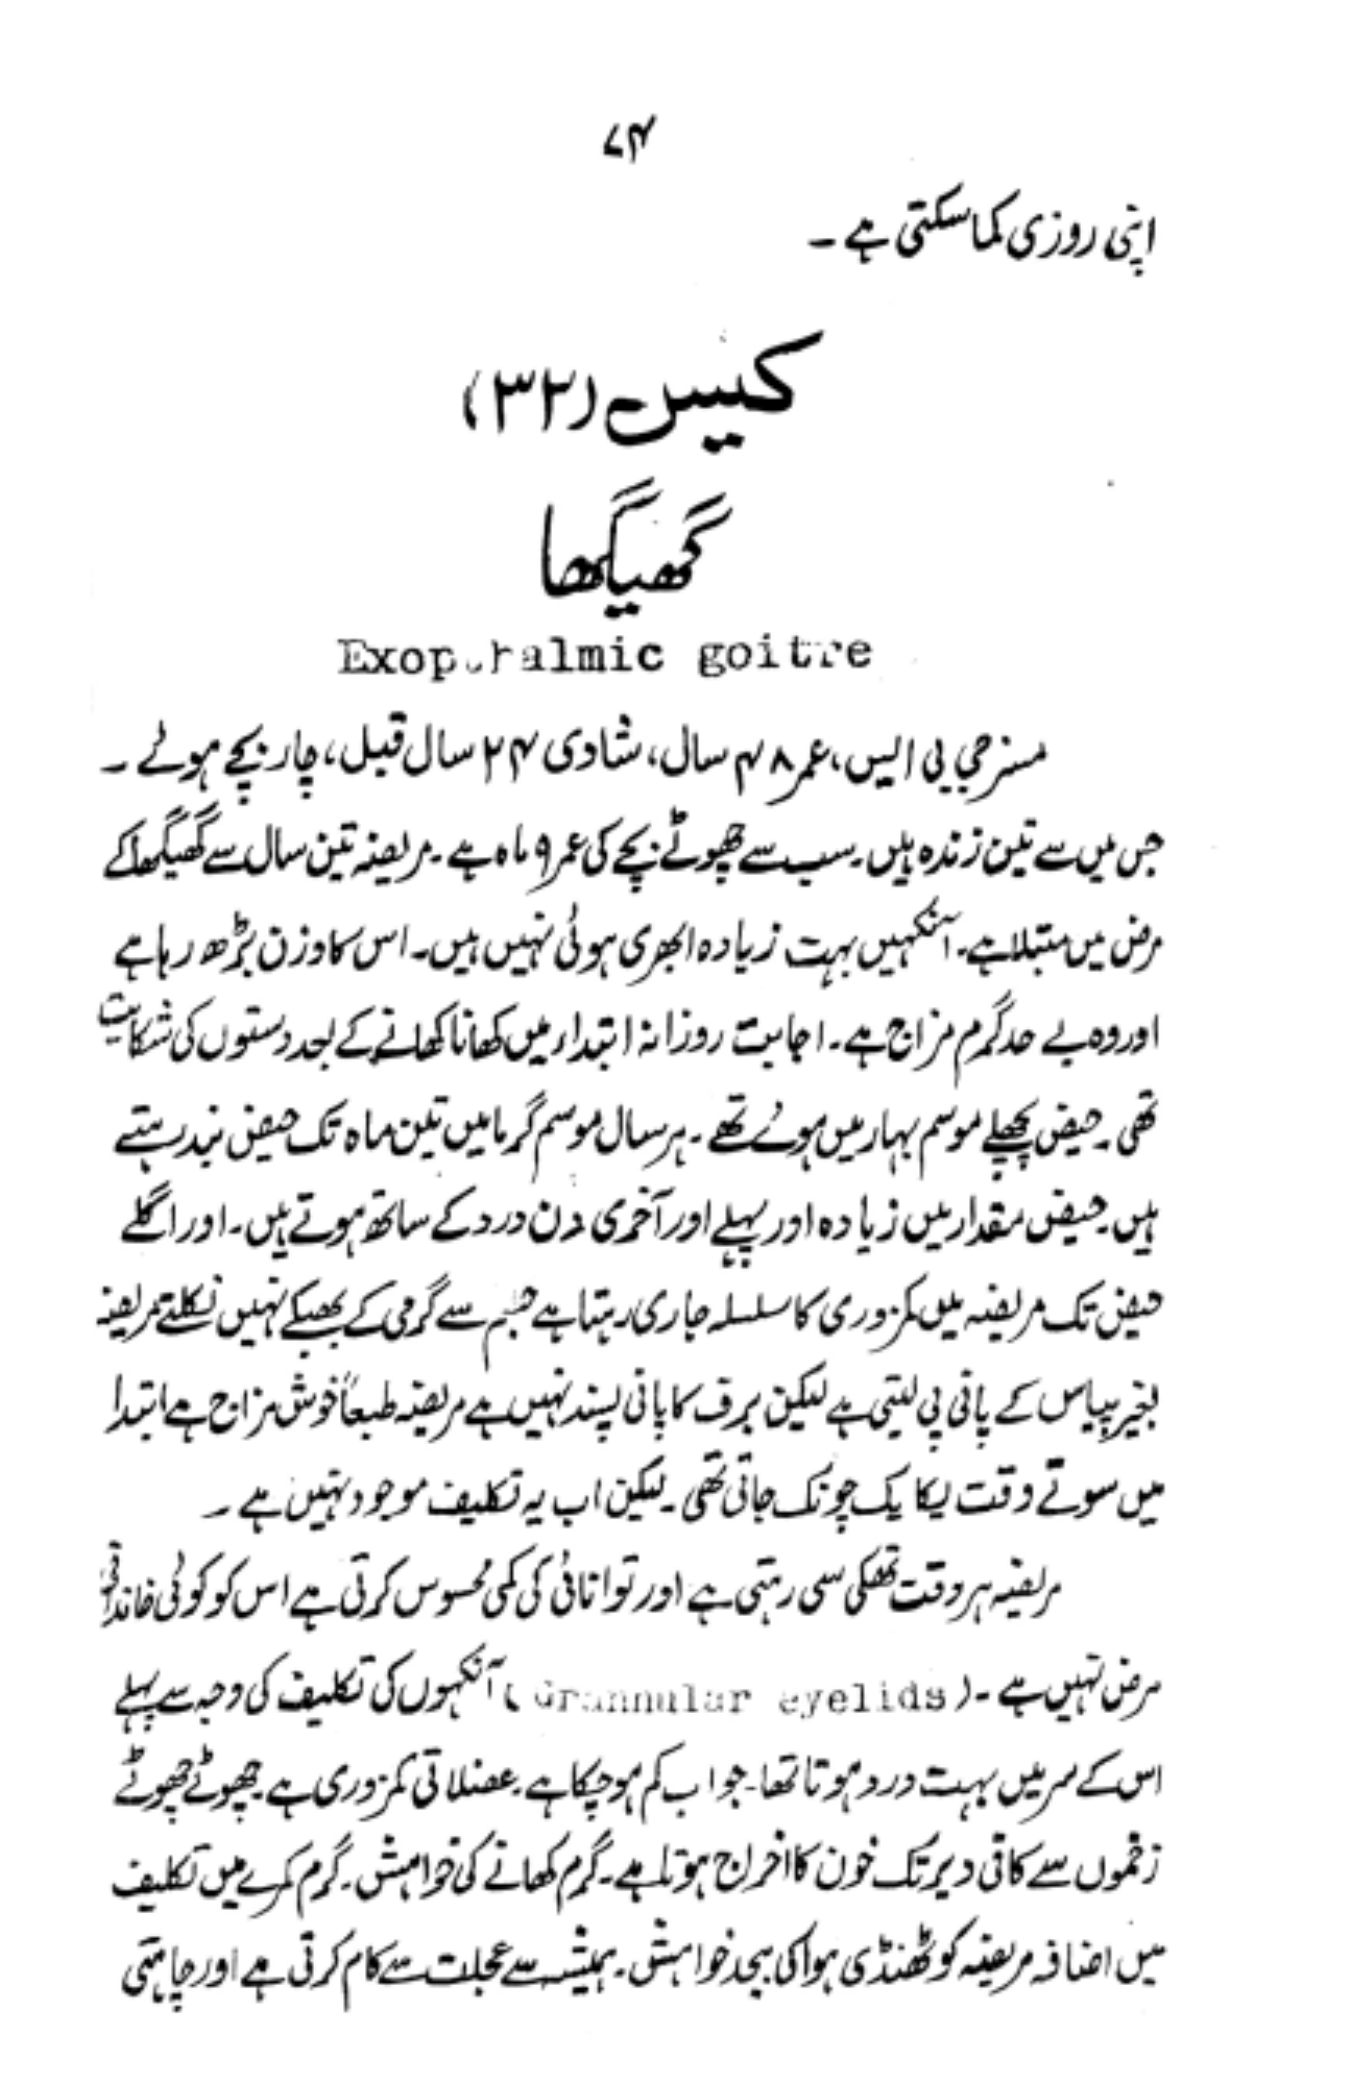 ۷۴
اپنی روزی کما سکتی ہے ۔
کیس (۳۲)
گھیگھا
Exopthalmic goitre
مسز جی بی ایس، عمر ۴۸ سال، شادی ۲۴ سال قبل، چار بچے ہوئے ۔
جس میں سے تین زندہ ہیں ۔ سب سے چھوٹے بچے کی عمر ۹ ماہ ہے ۔ مریضہ تین سال سے گھیگھا کے
مرض میں مبتلا ہے ۔ آنکھیں بہت زیادہ ابھری ہوئی نہیں ہیں ۔ اس کا وزن بڑھ رہا ہے
اور وہ بے حد گرم مزاج ہے ۔ اجابت روزانہ ابتداء میں کھانا کھانے کے بعد دستوں کی شکایت
تھی ۔ حیض پچھلے موسم بہار میں ہوئے تھے ۔ ہر سال موسم گرما میں تین ماہ تک حیض بند رہتے
ہیں ۔ حیض مقدار میں زیادہ اور پہلے اور آخری دن درد کے ساتھ ہوتے ہیں ۔ اور اگلے
حیض تک مریضہ میں کمزوری کا سلسلہ جاری رہتا ہے جسم سے گرمی کے بھپکے نہیں نکلتے مریضہ
بغیر پیاس کے پانی پی لیتی ہے لیکن برف کا پانی پسند نہیں ہے مریضہ طبعاً خوش مزاج ہے ابتدا
میں سوتے وقت یکایک چونک جاتی تھی ۔ لیکن اب یہ تکلیف موجود نہیں ہے ۔
مریضہ ہر وقت تھکی سی رہتی ہے اور توانائی کی کمی محسوس کرتی ہے اس کو کوئی خاندانی
مرض نہیں ہے ۔ (Grannular eyelids) آنکھوں کی تکلیف کی وجہ سے پہلے
اس کے سر میں بہت درد ہوتا تھا ۔ جو اب کم ہو چکا ہے ۔ عضلاتی کمزوری ہے ۔ چھوٹے چھوٹے
زخموں سے کافی دیر تک خون کا اخراج ہوتا ہے ۔ گرم کھانے کی خواہش ۔ گرم کمرے میں تکلیف
میں اضافہ مریضہ کو ٹھنڈی ہوا کی بیحد خواہش ۔ ہمیشہ سے عجلت سے کام کرتی ہے اور چاہتی